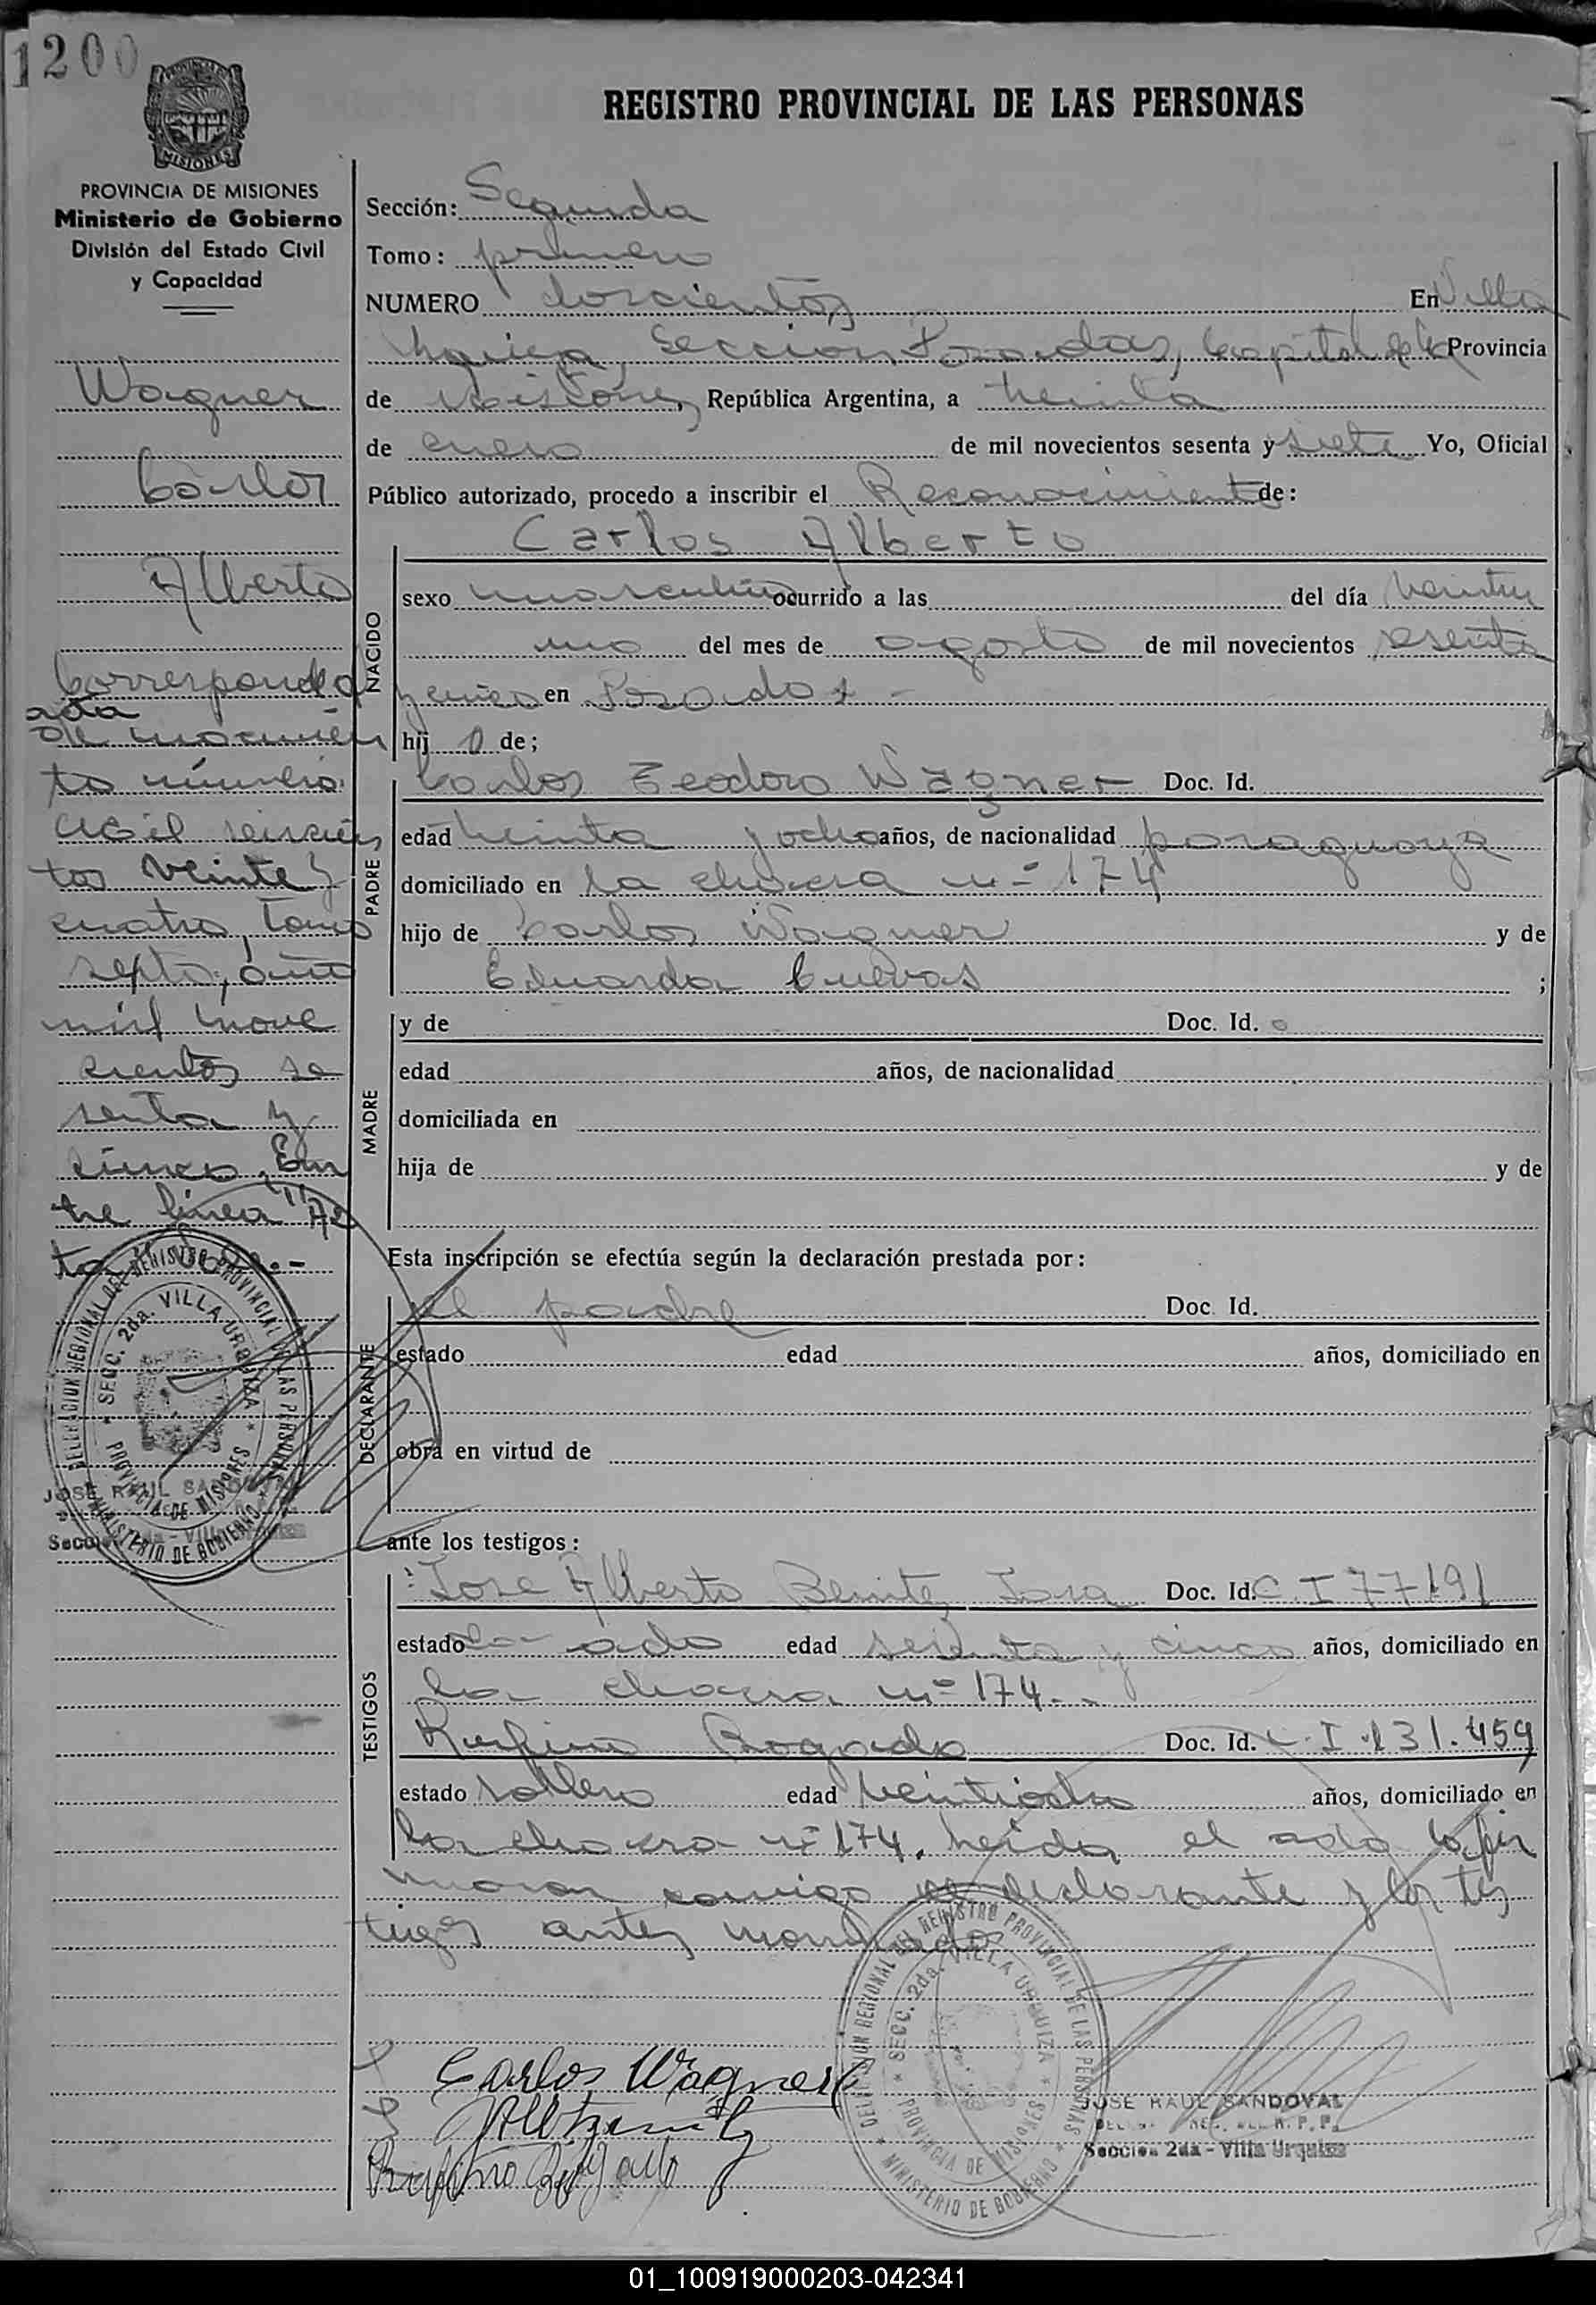 1200
MISIONES
PROVINCIA DE MISIONES
Ministerio de Gobierno
División del Estado Civil
y Capacidad
Wagner
Carlos
Alberto
Corresponde a
acta
de nacimien
to número
mil seiscien
tos veinte y
cuatro, Tomo
septo, año
mil nove
cientos se
senta y
cinco, En
tre línea "Ac
ta" Vale.-
DELEGACION REGIONAL DEL REGISTRO PROVINCIAL DE LAS PERSONAS
SECC. 2da. VILLA URQUIZA
PROVINCIA DE MISIONES
MINISTERIO DE GOBIERNO
JOSE RAUL SANDOVAL
REGISTRO PROVINCIAL DE LAS PERSONAS
Sección: Segunda
Tomo: primero
NUMERO doscientos En Villa
Urquiza, Sección Posadas, Capital de la Provincia
de Misiones, República Argentina, a treinta
de enero de mil novecientos sesenta y siete Yo, Oficial
Público autorizado, procedo a inscribir el Reconocimiento de:
NACIDO
Carlos Alberto
sexo masculino ocurrido a las del día veintiu
no del mes de agosto de mil novecientos sesenta
y cinco en Posadas -
hij o de;
PADRE
Carlos Teodoro Wagner Doc. Id.
edad treinta y ocho años, de nacionalidad paraguaya
domiciliado en la chacra nº 174
hijo de Carlos Wagner y de
Eduarda Cuevas ;
MADRE
y de Doc. Id.
edad años, de nacionalidad
domiciliada en
hija de y de
Esta inscripción se efectúa según la declaración prestada por:
DECLARANTE
el padre Doc. Id.
estado edad años, domiciliado en
obra en virtud de
ante los testigos:
TESTIGOS
Jose Alberto Benitez Doc. Id. C. I 77191
estado casado edad sesenta y cinco años, domiciliado en
la chacra nº 174.-
Rufino Bogado Doc. Id. C. I. 131.459
estado soltero edad veintiocho años, domiciliado en
la chacra nº 174. Leida el acta la fir
maron conmigo el declarante y los tes
tigos antes mencionados
Carlos Wagner
Rufino Bogado
DELEGACION REGIONAL DEL REGISTRO PROVINCIAL DE LAS PERSONAS
SECC. 2da. VILLA URQUIZA
PROVINCIA DE MISIONES
MINISTERIO DE GOBIERNO
JOSE RAUL SANDOVAL
Sección 2da - Villa Urquiza
01_100919000203-042341